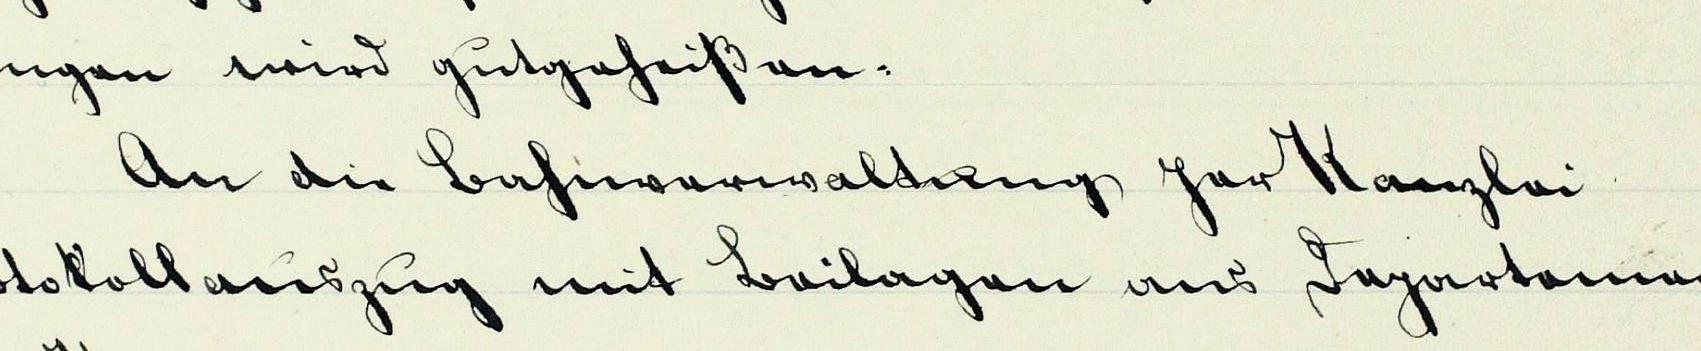 ngen wird gutgeheißen.
An die Bahnverwaltung per Kanzlei
otokollauszug mit Beilagen ans Departemen